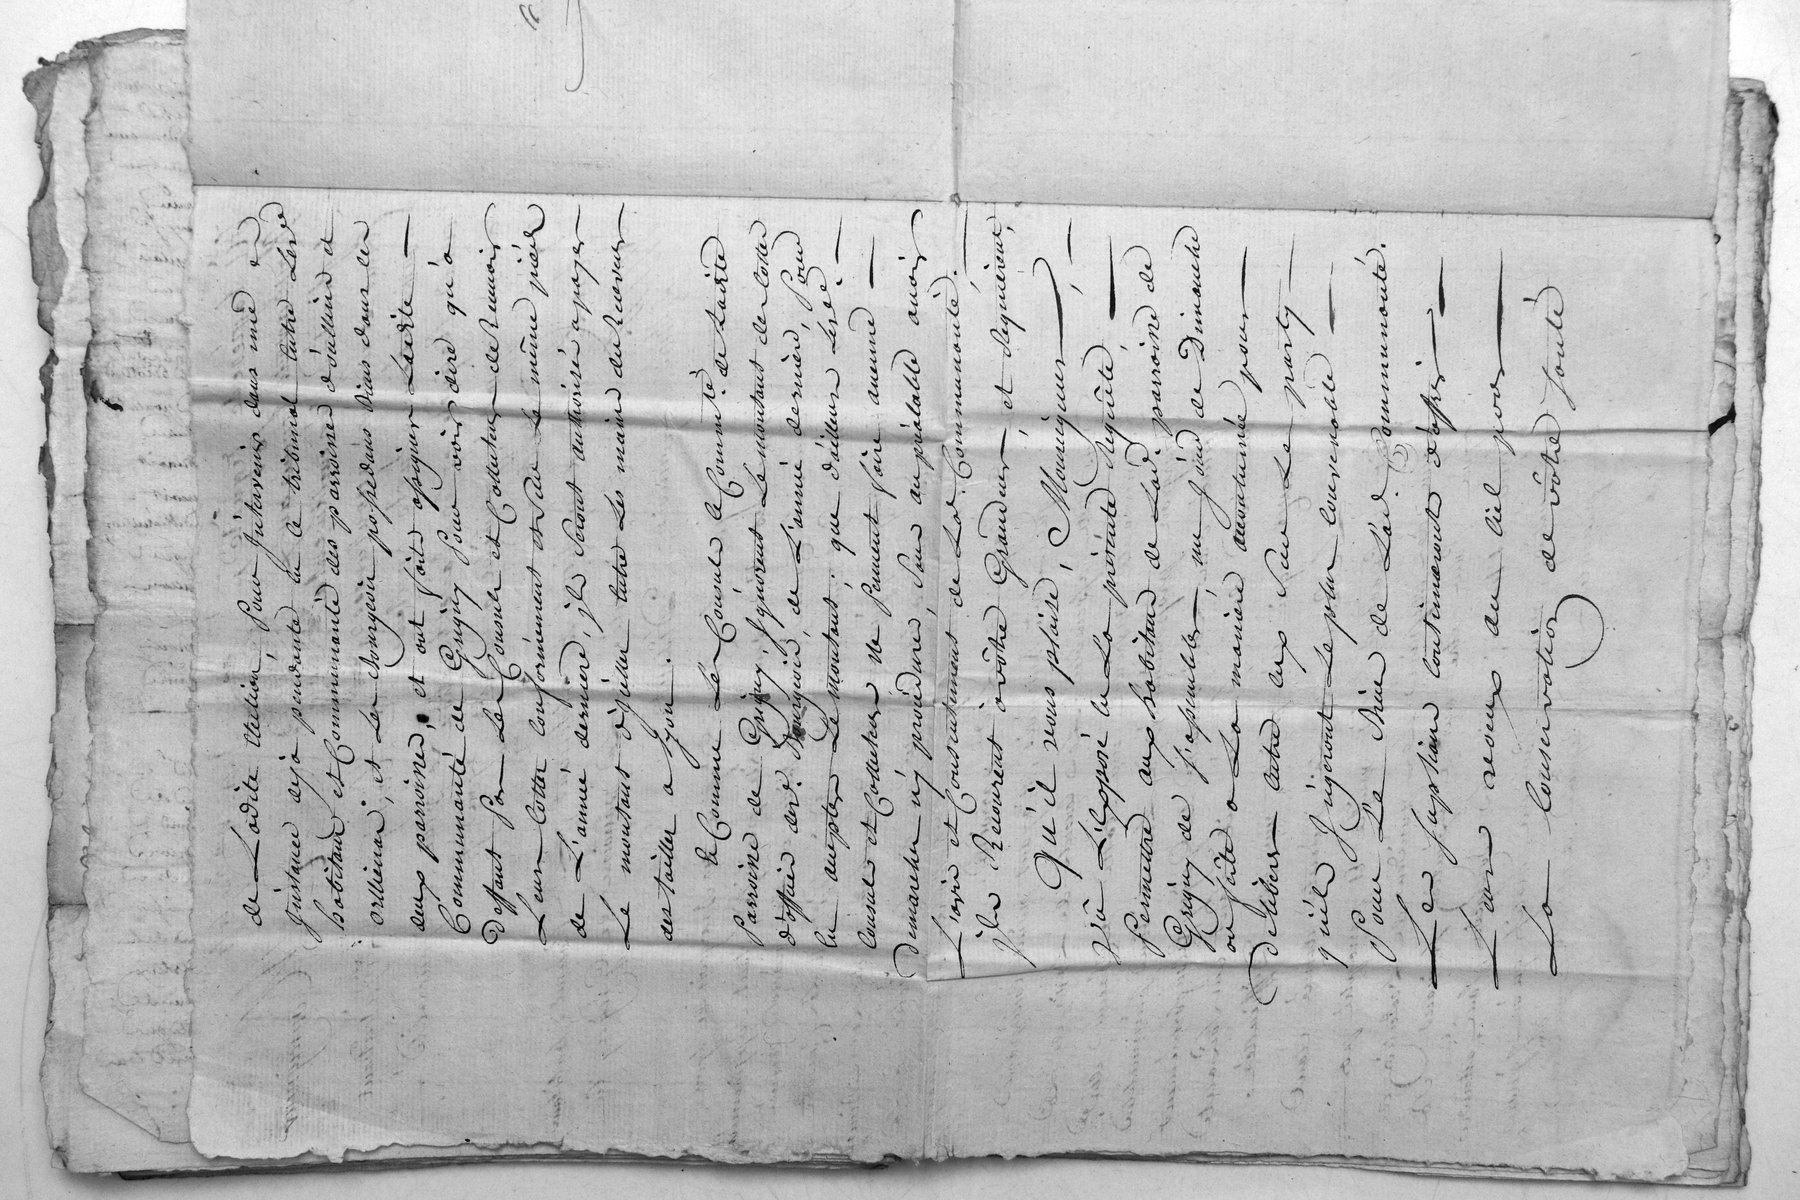 de Ladite Election, pour Intervenir dans une
Instance deja pendante en ce tribunal entre Lesd
habitans et Communauté des parroines d'oullins et
orlienas, et Les Bourgeois possedans biens dans les
deux parroines, et ont fait assigner Ladite
Communauté de Grigny pour voir dire qu'a
Deffaut par Les Consuls et Collecteurs de Remair
Leurs Cottes conformement et sur le même pied
de L'année derniere, ils seront authorisés a payer
Le montant d'icelles entre Les mains du Receveur
des tailles a Lyon.
Et Comme Les Consuls le Commté de Ladite
Parroine de Grigny, Ignorent Le montant des Cottes
d'office desd. Bourgeois, de L'année derniere, pour
en accepter Le montant; que d'ailleurs Lesd.
Consuls et Collecteurs ne peuvent faire aucune
Demarches n'y procedure, sans au préalable avoir
L'avis et Consentement de Lad. Communauté.
ils Recourent à vôtre Grandeur, et Requierent,
Qu'il vous plaise, Monseigneur,
vû L'Exposé en La présente Requête
Permettre aux habitans de Lad. parroine de
Grigny de s'assembler, un jour de Dimanche
ou fête a La maniere accoutumée pour
Deliberer entre eux sur Le party
qu'ils Jugeront Le plus convenable
Pour Le Bien de Lad. Communauté.
Les suplians continueront d'offrir
Leurs voeux au Ciel pour
La conservation de vôtre santé